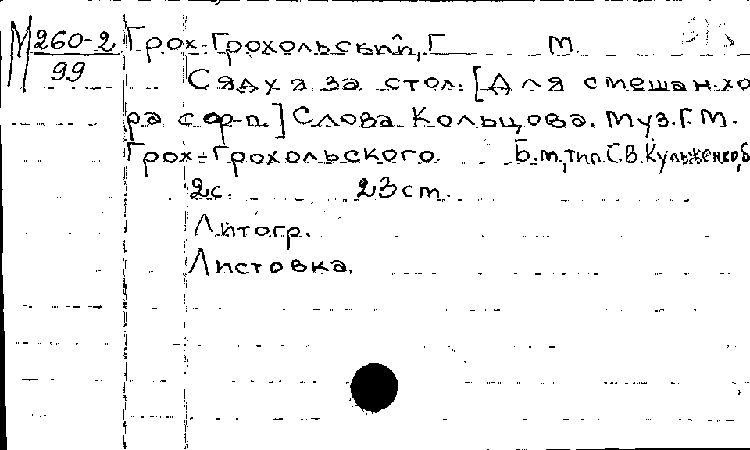 М 260-2 Грох-Грохольский, Г М.
99
Сяду я за стол. [Для смешан. хо
ра с ф-п.] Слова Кольцова. Муз. Г. М.
Грох-Грохольского. Б. м., тип. С. В. Кульженко, б
2 с. 23 см.
Литогр.
Листовка.